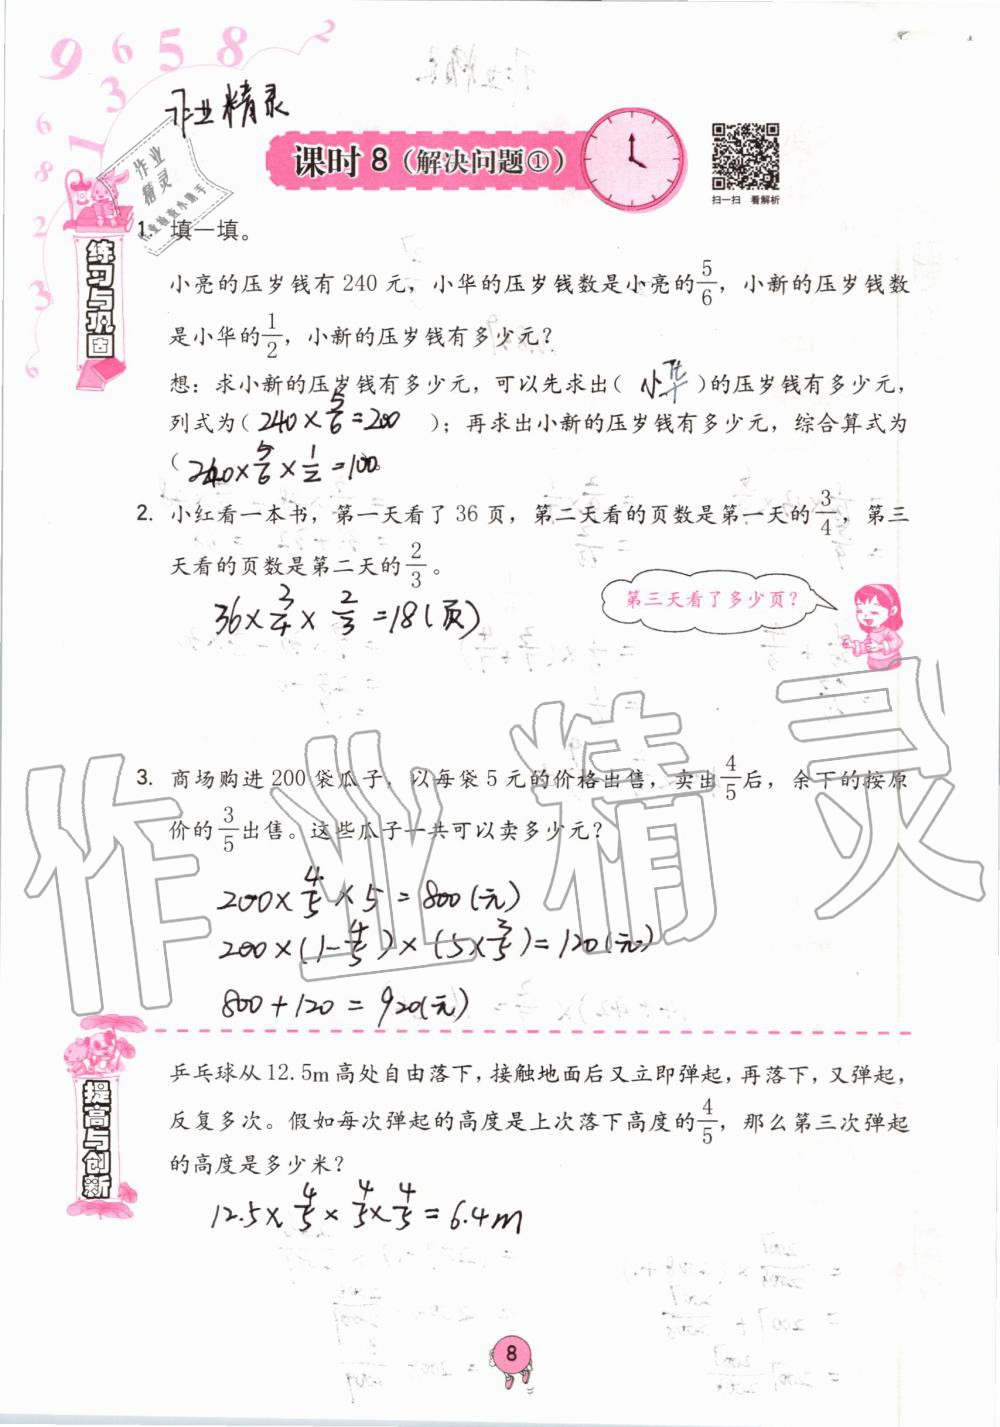 作业精灵
课时8（解决问题①）
扫一扫 看解析
练习与巩固
1. 填一填。
小亮的压岁钱有240元，小华的压岁钱数是小亮的5/6，小新的压岁钱数
是小华的1/2，小新的压岁钱有多少元？
想：求小新的压岁钱有多少元，可以先求出（小华）的压岁钱有多少元，
列式为（240×5/6=200）；再求出小新的压岁钱有多少元，综合算式为
（240×5/6×1/2=100。
2. 小红看一本书，第一天看了36页，第二天看的页数是第一天的3/4，第三
天看的页数是第二天的2/3。
第三天看了多少页？
36×3/4×2/3=18（页）
3. 商场购进200袋瓜子，以每袋5元的价格出售，卖出4/5后，余下的按原
价的3/5出售。这些瓜子一共可以卖多少元？
200×4/5×5=800（元）
200×(1-4/5)×(5×3/5)=120（元）
800+120=920（元）
提高与创新
乒乓球从12.5m高处自由落下，接触地面后又立即弹起，再落下，又弹起，
反复多次。假如每次弹起的高度是上次落下高度的4/5，那么第三次弹起
的高度是多少米？
12.5×4/5×4/5×4/5=6.4m
8
作业精灵